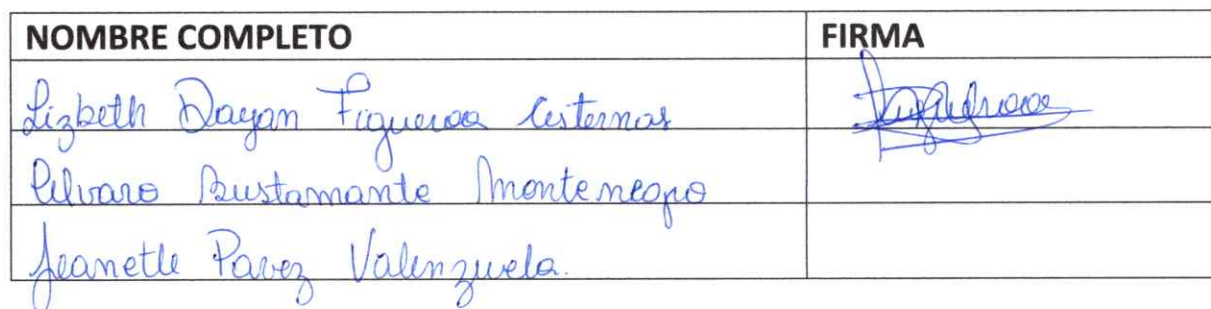 NOMBRE COMPLETO FIRMA
Lizbeth Dayan Figueroa Cisternas
Alvaro Bustamante Montenegro
Jeanette Pavez Valenzuela.